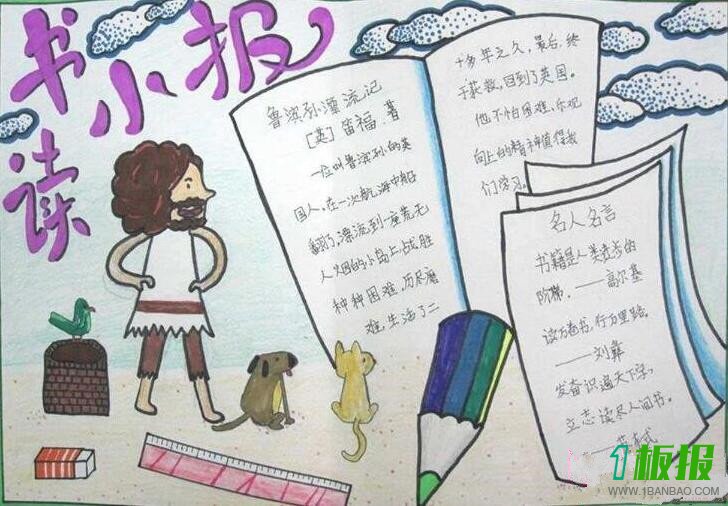 读书小报
鲁滨孙漂流记
[英] 笛福 著
一位叫鲁滨孙的英
国人,在一次航海中船
翻了,漂流到一座荒无
人烟的小岛上,战胜
种种困难,历尽磨
难,生活了二
十多年之久,最后,终
于获救,回到了英国。
他不怕困难,乐观
向上的精神值得我
们学习。
名人名言
书籍是人类进步的
阶梯。——高尔基
读万卷书,行万里路。
——刘彝
发奋识遍天下字,
立志读尽人间书。
1板报
WWW.1BANBAO.COM